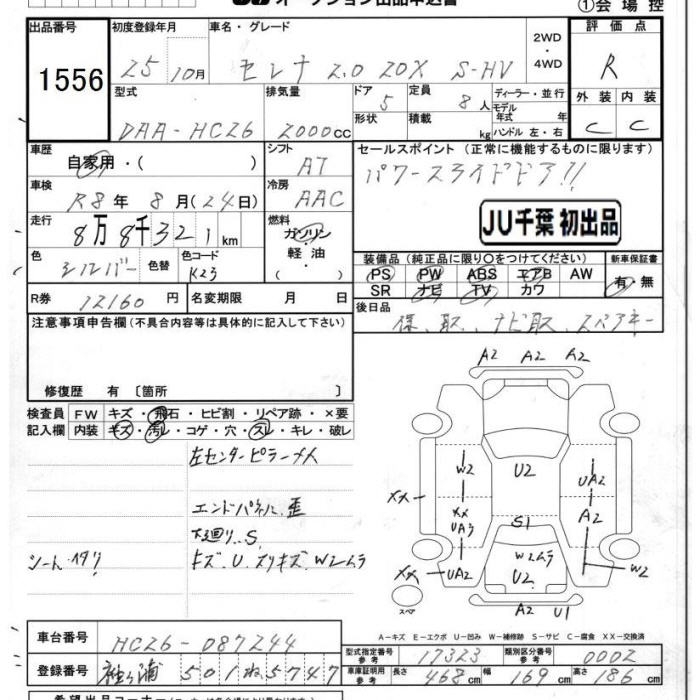 JU オークション出品申込書
①会場控
出品番号 初度登録年月 車名・グレード 2WD・4WD 評価点
1556 25 10月 セレナ 2.0 20X S-HV R
型式 排気量 ドア 定員 ディーラー・並行 外装 内装
DAA-HC26 2000cc 5 8人 モデル年式 年 C C
形状 積載 kg ハンドル 左・右
車歴 シフト セールスポイント (正常に機能するものに限ります)
自家用・( ) AT パワースライドドア!!
車検 冷房
R8年 8月(24日) AAC
走行 燃料 JU千葉 初出品
8万8千321km ガソリン
軽油
( )
色 色替 色コード 装備品(純正品に限り○をつけてください) 新車保証書
シルバー K23 PS PW ABS エアB AW 有・無
SR ナビ TV カワ
R券 12160円 名変期限 月 日 後日品
保、取、ナビ取、スペアキー
注意事項申告欄(不具合内容等は具体的に記入して下さい)
修復歴 有 〔箇所 〕
検査員 FW キズ・飛石・ヒビ割・リペア跡・×要
記入欄 内装 キズ・汚レ・コゲ・穴・スレ・キレ・破レ
左センターピラーメ人
エンドパネル歪
下廻り、S
シートヘタリ キズ、U、スリキズ、W2ムラ
A2 A2 A2
W2 U2 UA2
XX XX A2
UA3 S1
W2ムラ
XX UA2 U2 W2
スペア A2 U1
A-キズ E-エクボ U-凹み W-補修跡 S-サビ C-腐食 XX-交換済
車台番号 HC26-087244
型式指定番号 参考 17323 類別区分番号 参考 0002
登録番号 袖ヶ浦 501 ね 5747
車庫証明用 参考 長さ 468cm 幅 169cm 高さ 186cm